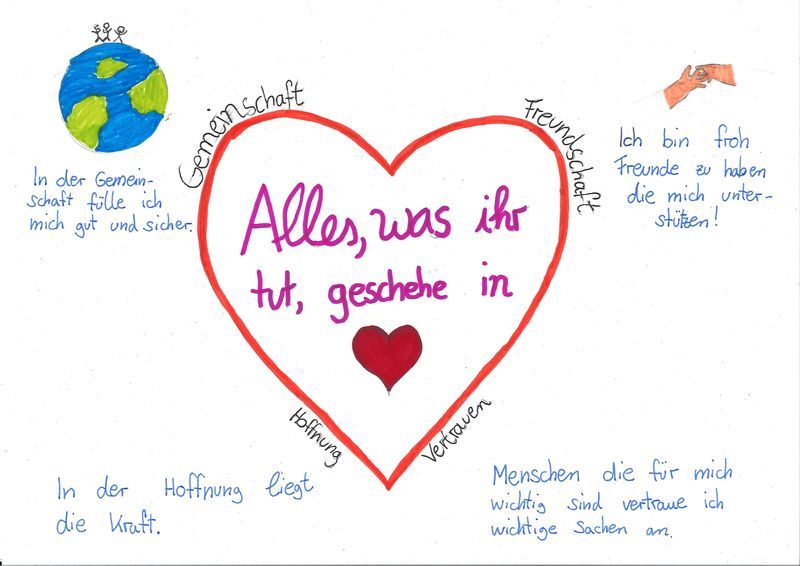 Gemeinschaft
Freundschaft
In der Gemein-
schaft fülle ich
mich gut und sicher.
Ich bin froh
Freunde zu haben
die mich unter-
stützen!
Alles, was ihr
tut, geschehe in
Hoffnung
Vertrauen
In der Hoffnung liegt
die Kraft.
Menschen die für mich
wichtig sind vertraue ich
wichtige Sachen an.